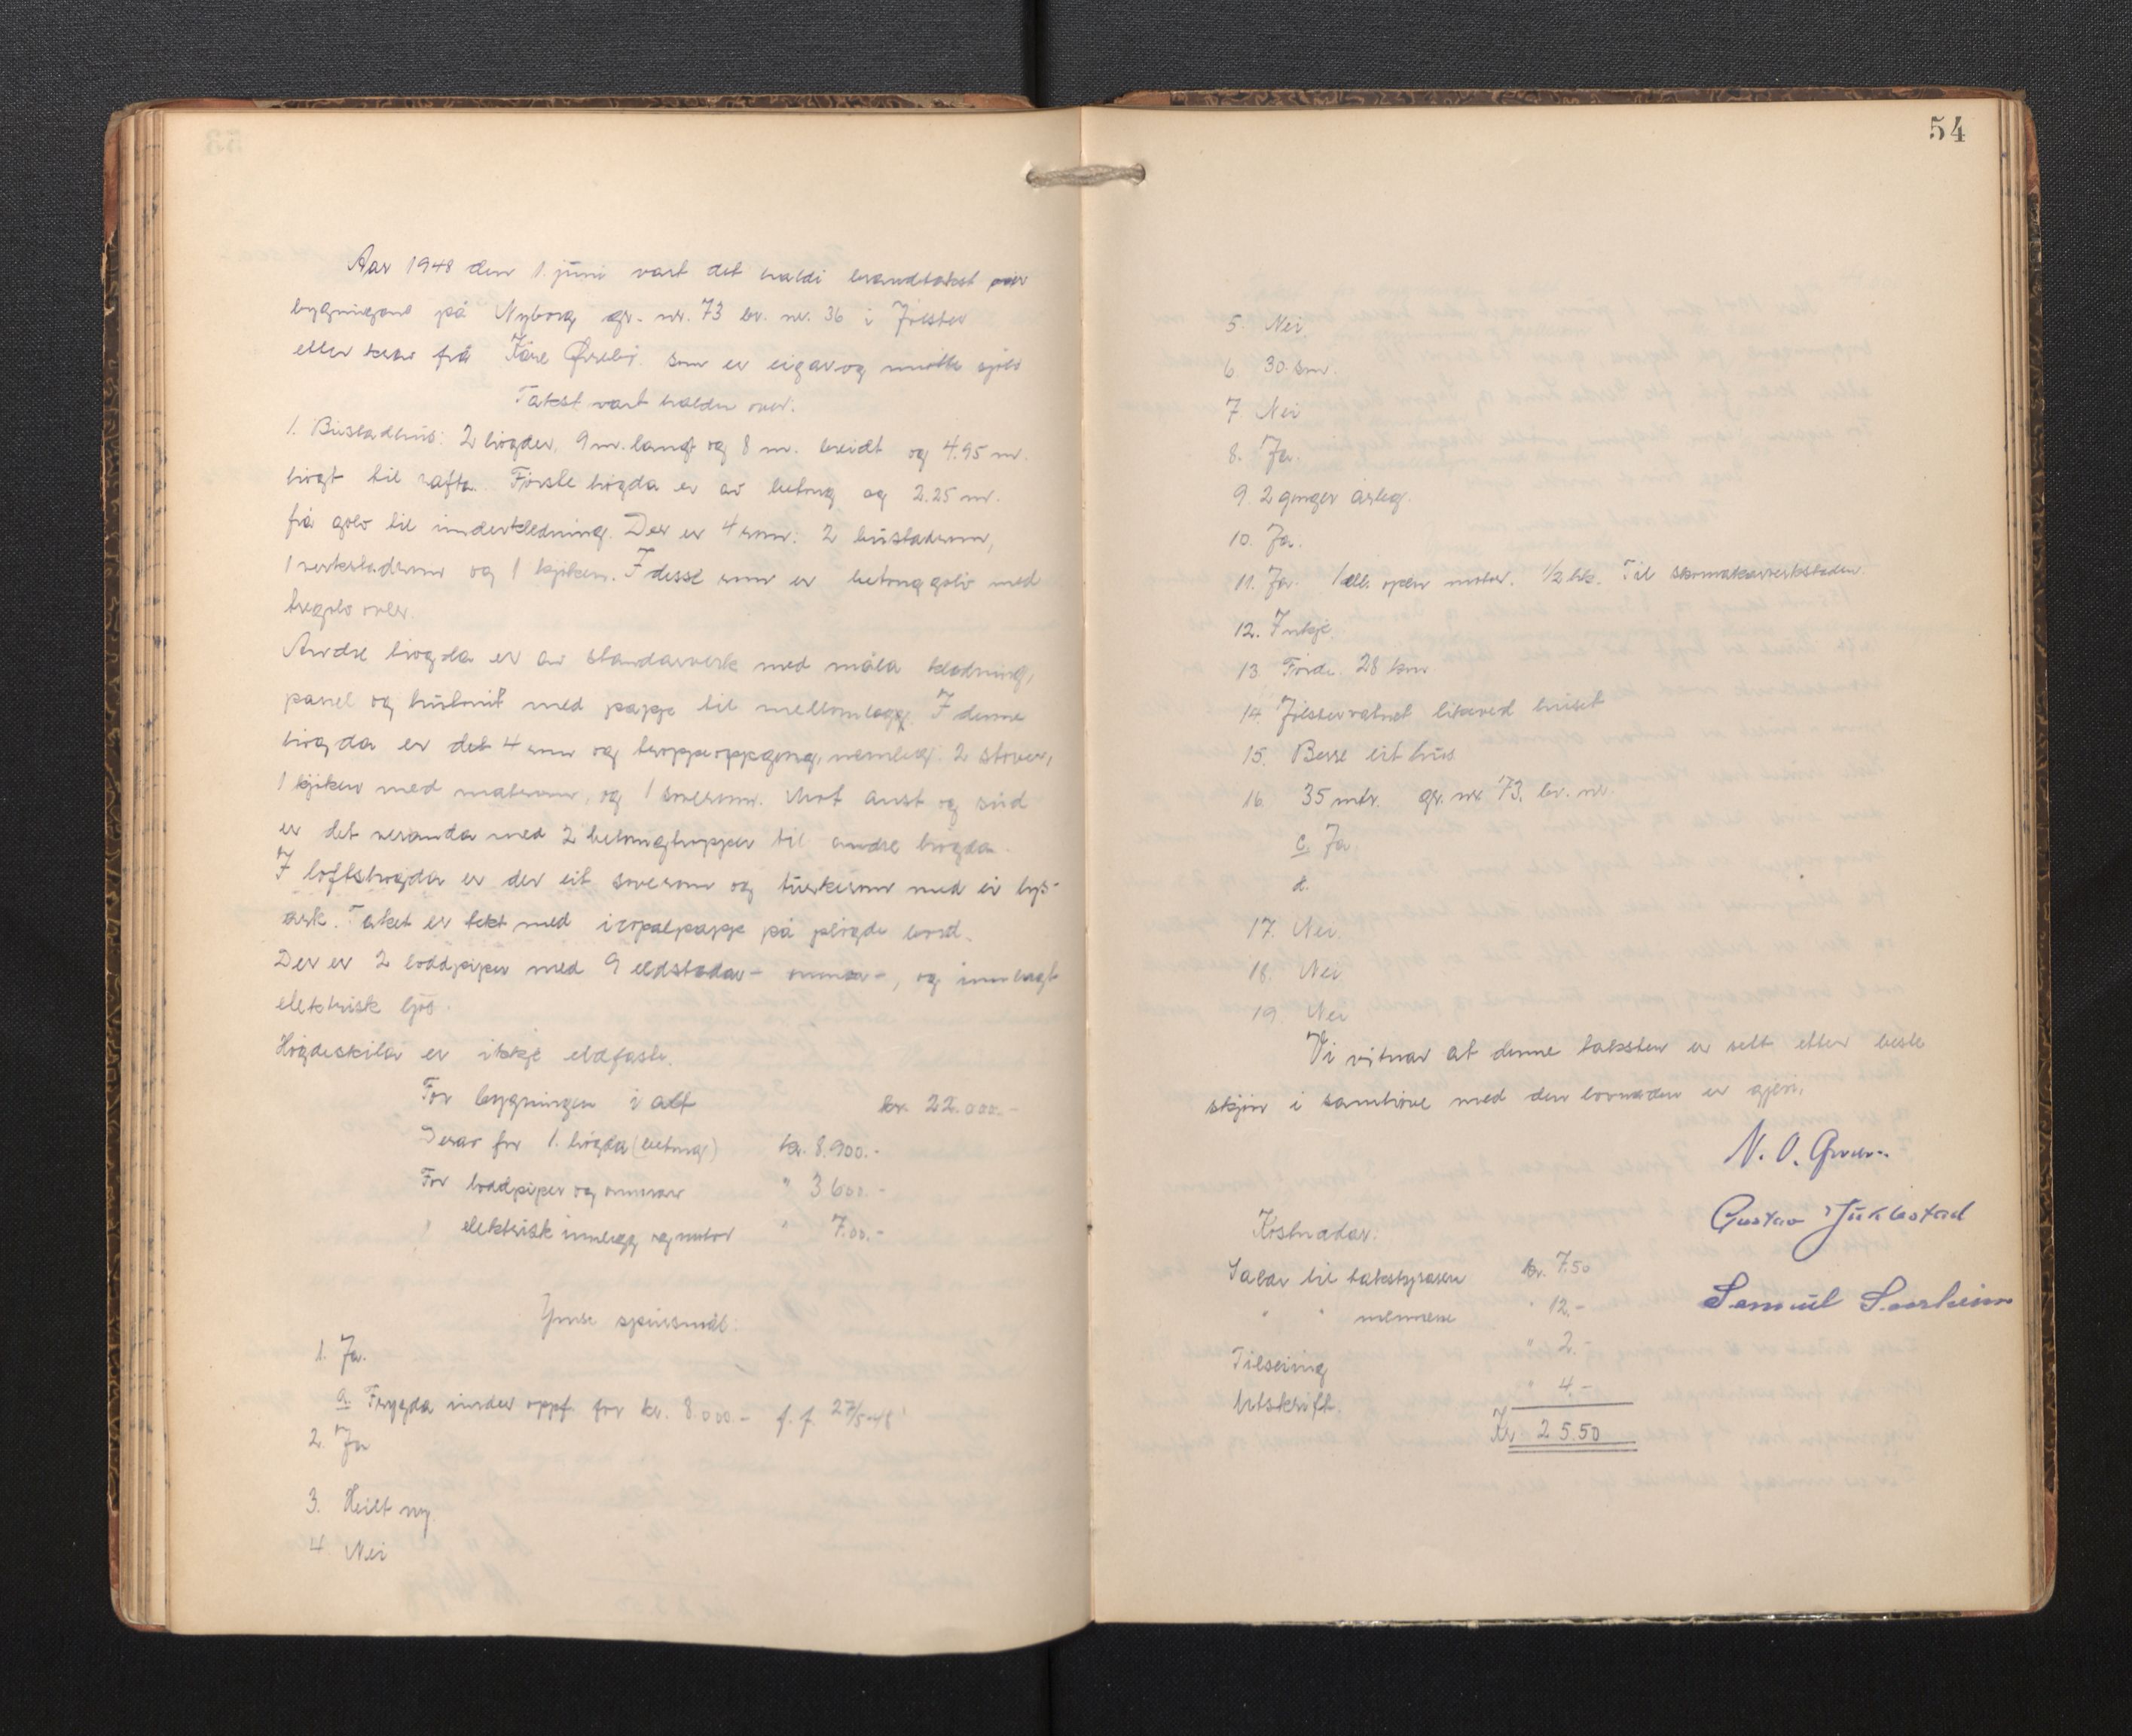 Aar 1948 den 1. juni vart det haldi brandtakst over
bygningane på Nyborg gr. nr. 73 br. nr. 36 i Jölster
etter krav frå Kåre Ørrebö. som er eigar og møtte sjölv
Takst vart halden over:
1. Bustadhus: 2 högder, 9 m. langt og 8 m. breidt og 4.95 m.
högt til rafta. Förste högda er av betong og 2.25 m.
frå golv til underkledning. Der er 4 rom: 2 bustadrom,
1 verkstadrom og 1 kjöken. I desse rom er betonggolv med
tregolv over.
Andre högda er av standarverk med måla kledning,
panel og huntonit med papp til mellomlegg. I denne
högda er det 4 rom og troppeoppgang, nemleg: 2 stover,
1 kjöken med matrom, og 1 soverom. Mot aust og sud
er det veranda med 2 betongtropper til andre högda.
I loftshögda er der eit soverom og turkerom med ei lys-
ark. Taket er tekt med icopalpapp på plögde bord.
Der er 2 loddpiper med 9 eldstadar - omnar -, og innlagt
elektrisk ljos.
Högdeskila er ikkje eldfaste.
For bygningen i alt kr. 22.000.-
Derav for 1. högda (betong) kr. 8.900.-
For loddpiper og omnar " 3600.-
" elektrisk innlegg og motor " 700.-
Ymse spursmål.
1. Ja.
a. Trygda under oppf. for kr. 8.000.- f. f. 27/5-48
2. Ja
3. Heilt ny
4. Nei
54
5. Nei.
6. 30 sm.
7. Nei
8. Ja.
9. 2 gonger årleg.
10. Ja.
11. Ja. 1 ell. open motor. 1/2 hk. Til skomakarverkstaden.
12. Inkje.
13. Förde 28 km
14. Jölstervatnet likeved huset
15. Berre eit hus
16. 35 mtr. gr. nr. 73, br. nr.
c. Ja.
d.
17. Nei.
18. Nei
19. Nei
Vi vitnar at denne taksten er sett etter beste
skjön i samhöve med den lovnaden er gjeve.
N. O.
Gustav Juklestad
Kostnadar.
Salar til takstgrasen kr. 7.50
Samuel
" " mennene " 12.-
Tilseiing " 2.-
Utskrift. " 4.-
Kr 25.50